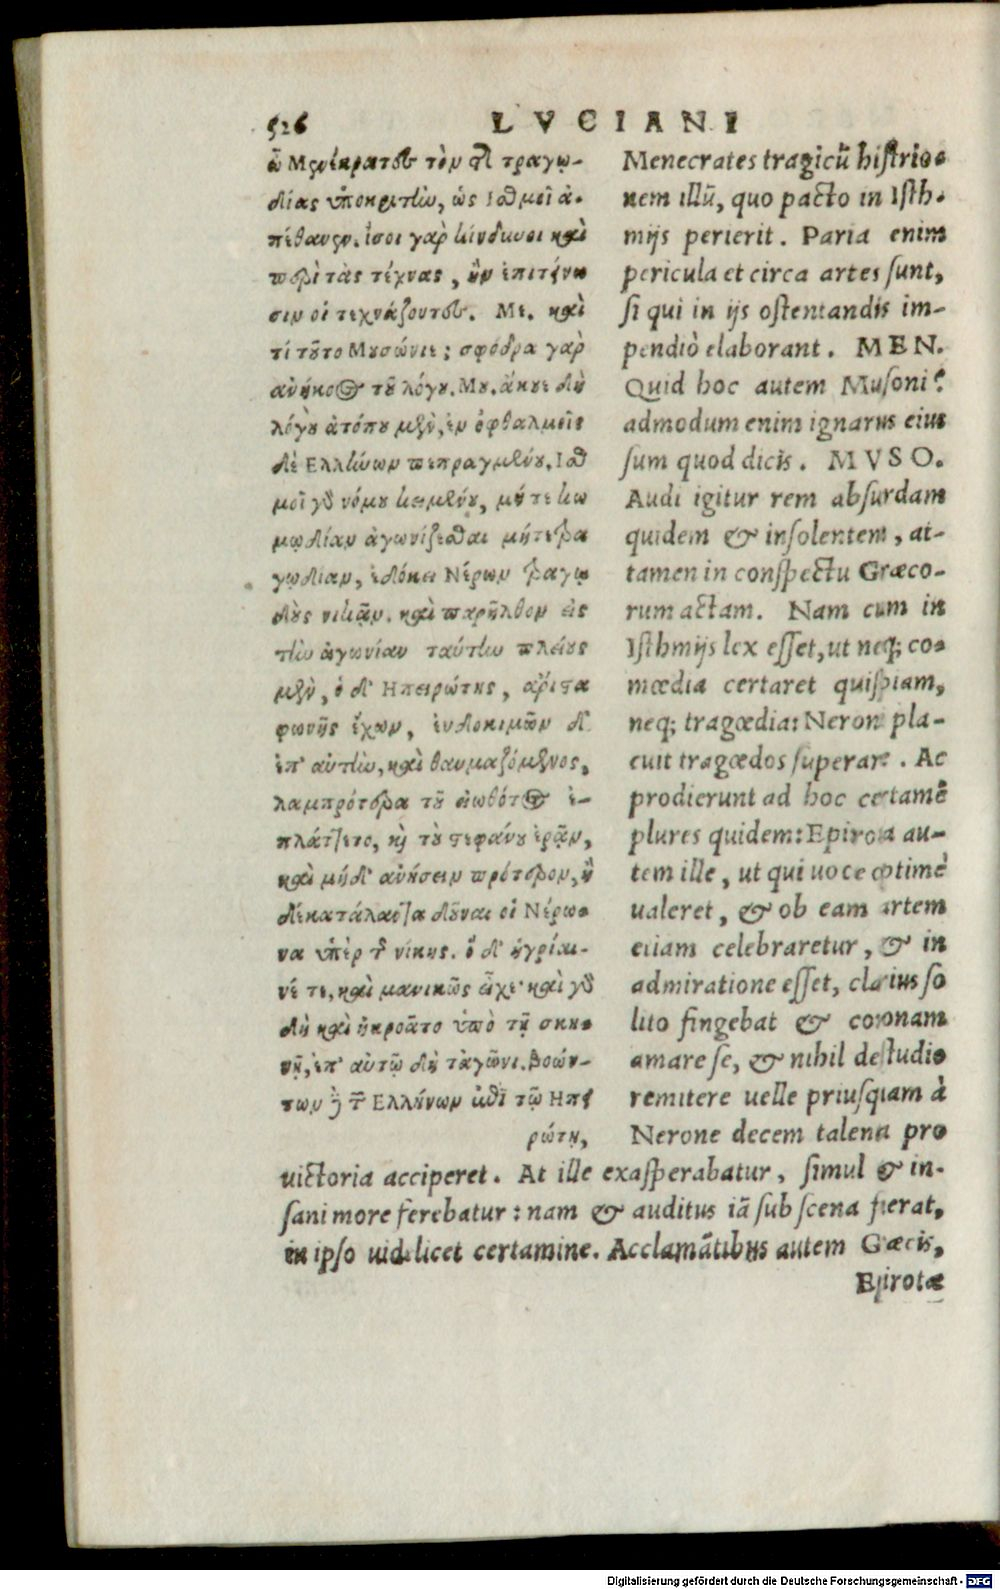 526 LVCIANI
ὦ Μενέκρατες τὸν τῆς τραγῳ-
δίας ὑποκριτὴν, ὡς Ἰσθμοῖ ἀ-
πέθανεν. ἴσοι γὰρ κίνδυνοι καὶ
περὶ τὰς τέχνας, ἢν ἐπιτείνω
σιν οἱ τεχνάζοντες. Με. καὶ
τί τοῦτο Μουσώνιε; σφόδρα γὰρ
ἀνήκοος τοῦ λόγου. Μου. ἄκουε δὴ
λόγου ἀτόπου μὲν, ἐν ὀφθαλμοῖς
δὲ Ἑλλήνων πεπραγμένου. Ἰσθ
μοῖ γὰρ νόμου κειμένου, μήτε κω
μῳδίαν ἀγωνίζεσθαι μήτε τρα
γῳδίαν, ἐδόκει Νέρων τραγῳ
δοὺς νικᾷν. καὶ παρῆλθον εἰς
τὴν ἀγωνίαν ταύτην πλείους
μὲν, ὁ δ' Ἠπειρώτης, ἄριστα
φωνῆς ἔχων, ἐυδοκιμῶν δ'
ἐπ' αὐτὴν, καὶ θαυμαζόμενος,
λαμπρότερα τοῦ εἰωθότος ἐ-
πλάττετο, καὶ τοῦ στεφάνου ἐρᾷν,
καὶ μήδ' ἀνήσειν πρότερον, ἢ
δέκα τάλαντα δοῦναι οἱ Νέρω-
να ὑπὲρ τῆς νίκης. ὁ δ' ἠγρίαι-
νέ τε, καὶ μανικῶς εἶχε· καὶ γὰρ
δὴ καὶ ἠκροᾶτο ὑπὸ τῇ σκη-
νῇ, ἐπ' αὐτῷ δὴ τἀγῶνι. βοών-
των δὲ τῶν Ἑλλήνων ἐπὶ τῷ Ἠπει
ρώτῃ,
Menecrates tragicũ histrio-
nem illũ, quo pacto in Isth-
mijs perierit. Paria enim
pericula et circa artes sunt,
si qui in ijs ostentandis im-
pendiò elaborant. MEN.
Quid hoc autem Musoni?
admodum enim ignarus eius
sum quod dicis. MVSO.
Audi igitur rem absurdam
quidem & insolentem, at-
tamen in conspectu Græco-
rum actam. Nam cum in
Isthmijs lex esset, ut neq; co-
mœdia certaret quispiam,
neq; tragœdia: Neroni pla-
cuit tragœdos superare. Ac
prodierunt ad hoc certamẽ
plures quidem: Epirota au-
tem ille, ut qui uoce optimè
ualeret, & ob eam artem
etiam celebraretur, & in
admiratione esset, clarius so
lito fingebat & coronam
amare se, & nihil de studio
remitere uelle priusquam à
Nerone decem talenta pro
uictoria acciperet. At ille exasperabatur, simul & in-
sani more ferebatur: nam & auditus iã sub scena fuerat,
in ipso uidelicet certamine. Acclamãtibus autem Græcis,
Epirotæ
Digitalisierung gefördert durch die Deutsche Forschungsgemeinschaft - DFG